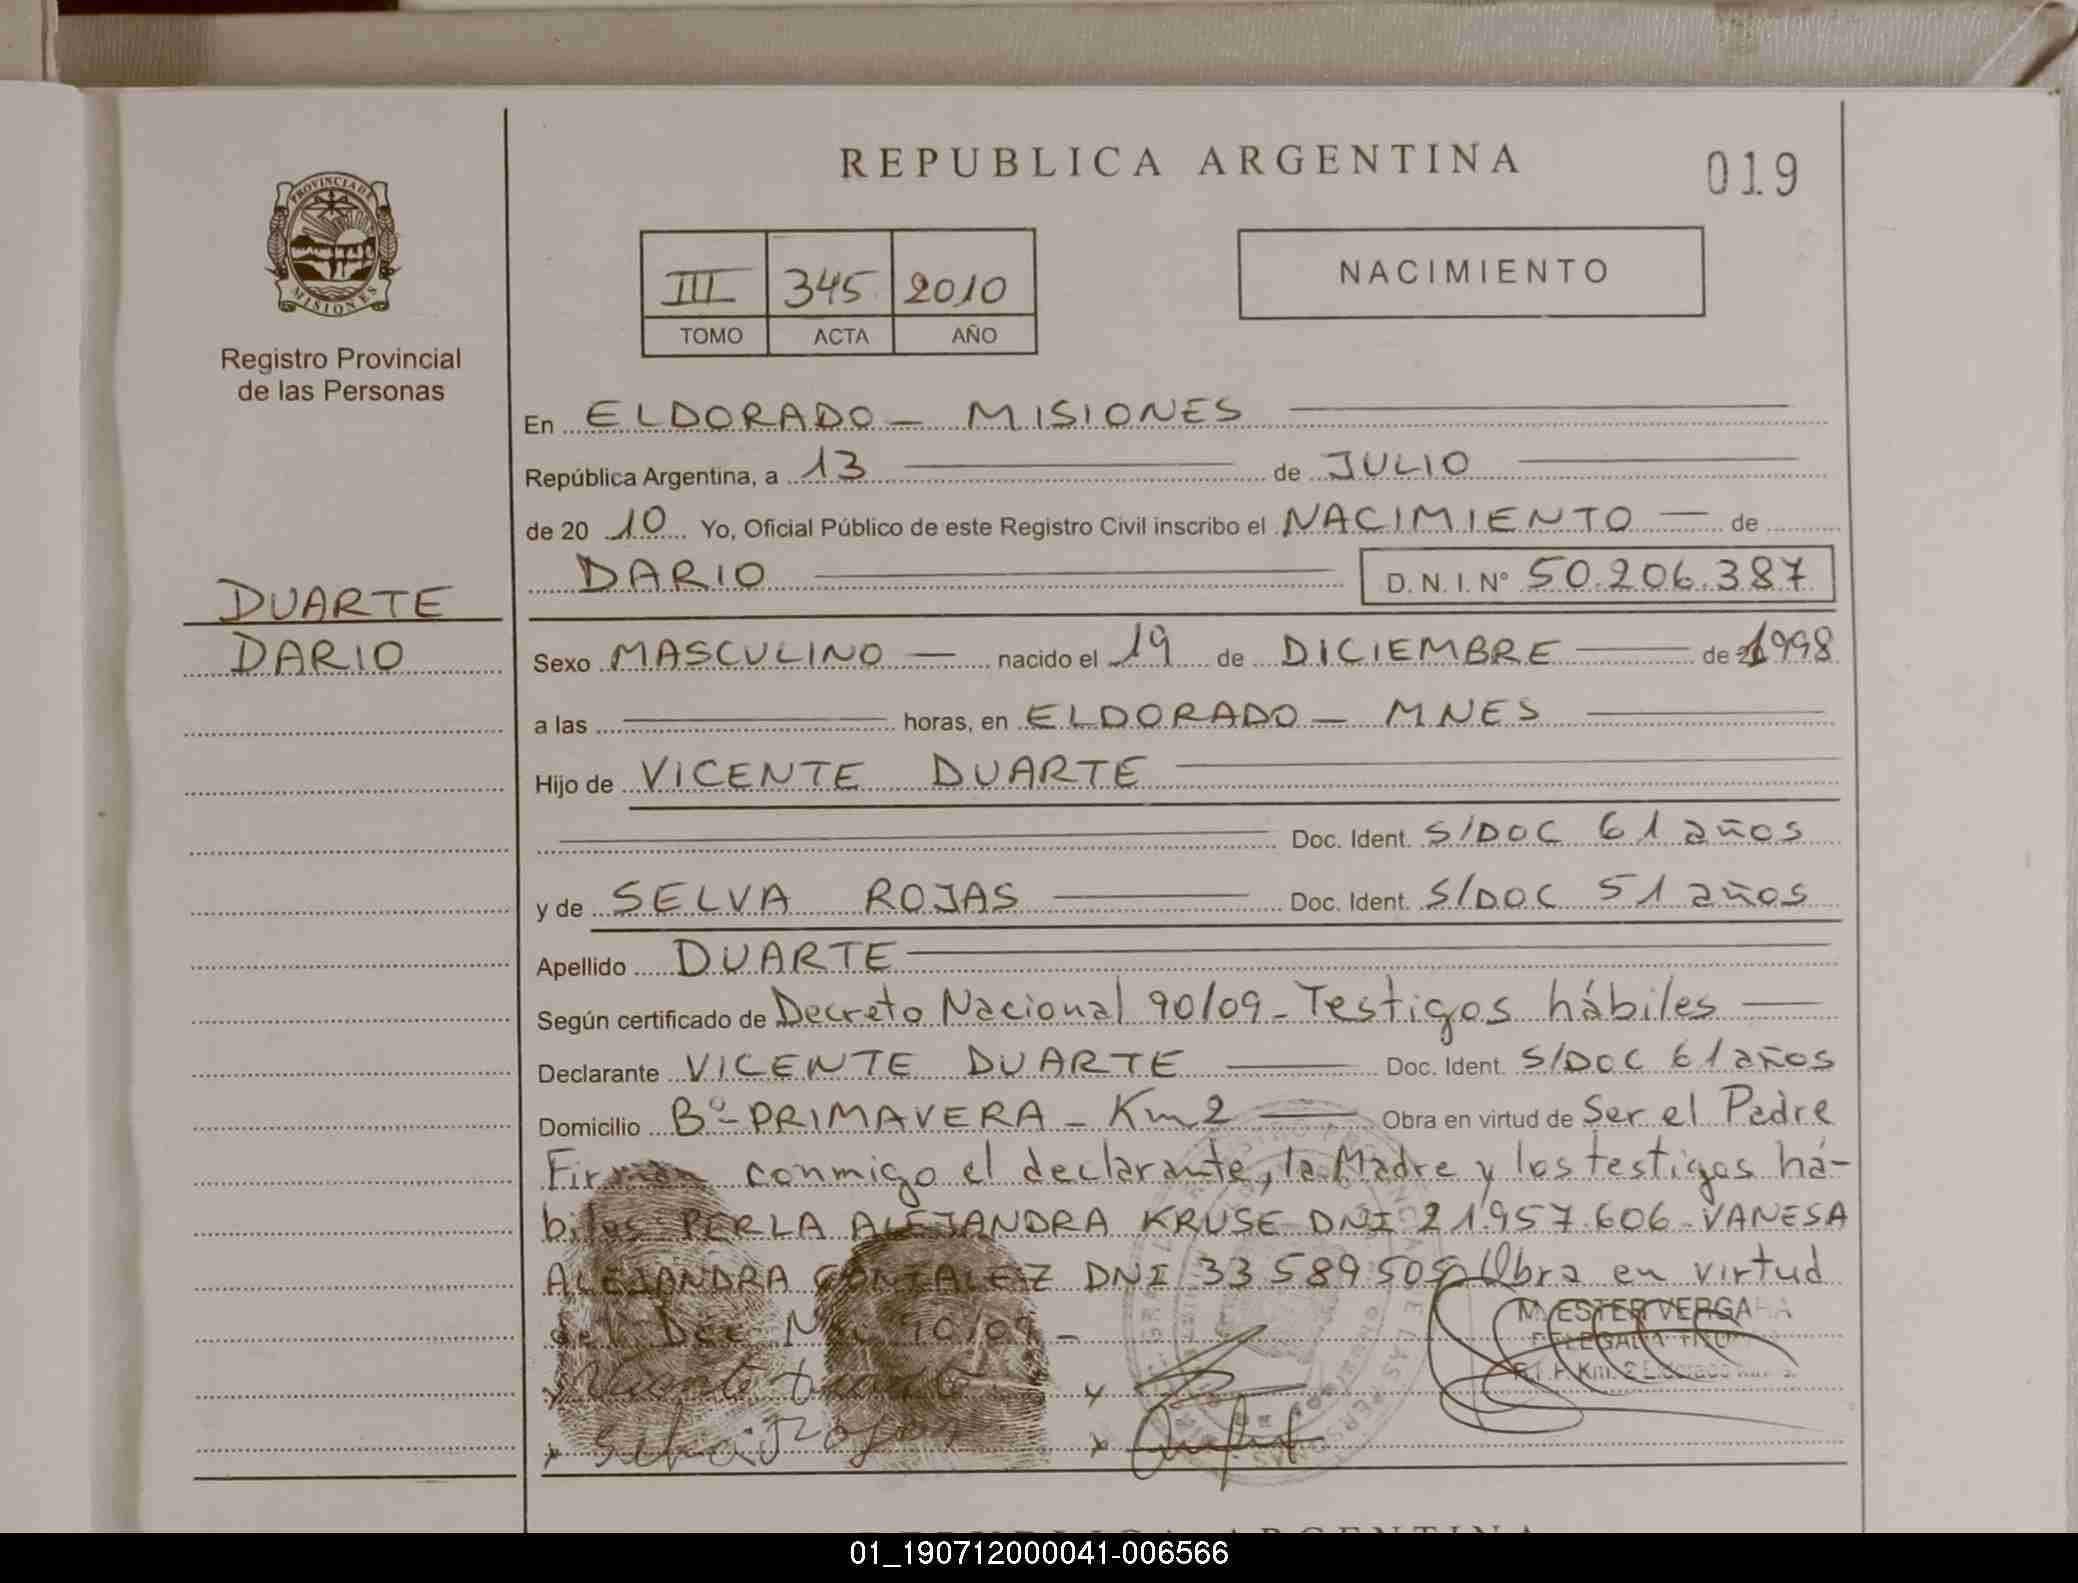 REPUBLICA ARGENTINA
019
PROVINCIA DE
MISIONES
Registro Provincial
de las Personas
III 345 2010
TOMO ACTA AÑO
NACIMIENTO
DUARTE
DARIO
En ELDORADO - MISIONES
República Argentina, a 13 de JULIO
de 20 10 Yo, Oficial Público de este Registro Civil inscribo el NACIMIENTO de
DARIO D.N.I. Nº 50.206.387
Sexo MASCULINO nacido el 19 de DICIEMBRE de 1998
a las horas, en ELDORADO - MNES
Hijo de VICENTE DUARTE
Doc. Ident. S/DOC 61 años
y de SELVA ROJAS Doc. Ident. S/DOC 51 años
Apellido DUARTE
Según certificado de Decreto Nacional 90/09 - Testigos hábiles
Declarante VICENTE DUARTE Doc. Ident. S/DOC 61 años
Domicilio Bº PRIMAVERA - Km 2 Obra en virtud de Ser el Padre
Firman conmigo el declarante, la Madre y los testigos há-
biles PERLA ALEJANDRA KRUSE DNI 21.957.606 - VANESA
ALEJANDRA GONZALEZ DNI 33589505 Obra en virtud
del Dec. 90/09 -
M. ESTER VERGARA
Vicente Duarte
Selva Rojas
01_190712000041-006566